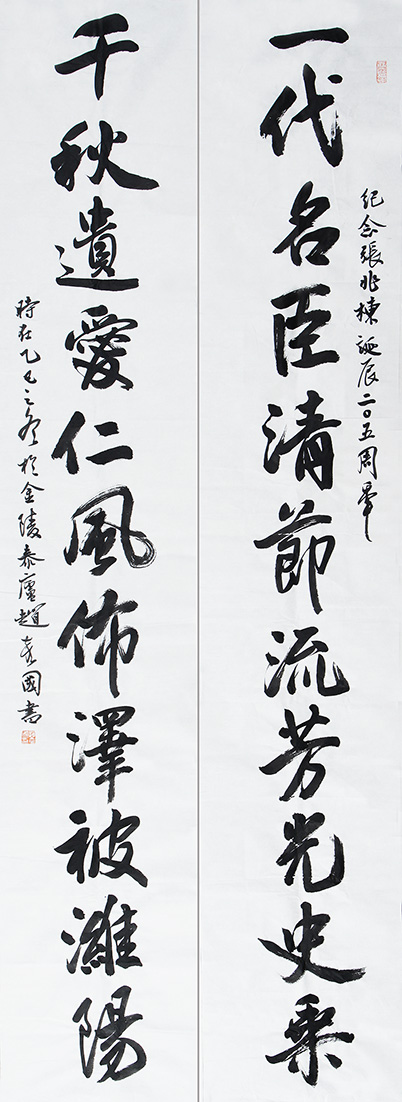 紀念張兆棟誕辰二〇五周年
一代名臣清節流芳光史乘
千秋遺愛仁風佈澤被濰陽
時在乙巳之冬於金陵泰廬趙彥國書